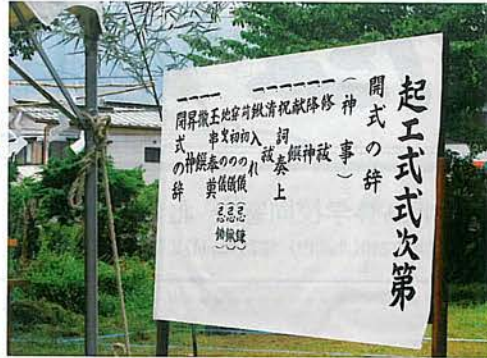 起工式式次第
開式の辞
(神事)
一修祓
一降神
一献饌
一祝詞奏上
一清祓
一鍬入れ
苅初の儀(忌鎌)
穿初の儀(忌鍬)
地曳の儀(忌鋤)
一玉串奉奠
一撤饌
一昇神
一閉式の辞